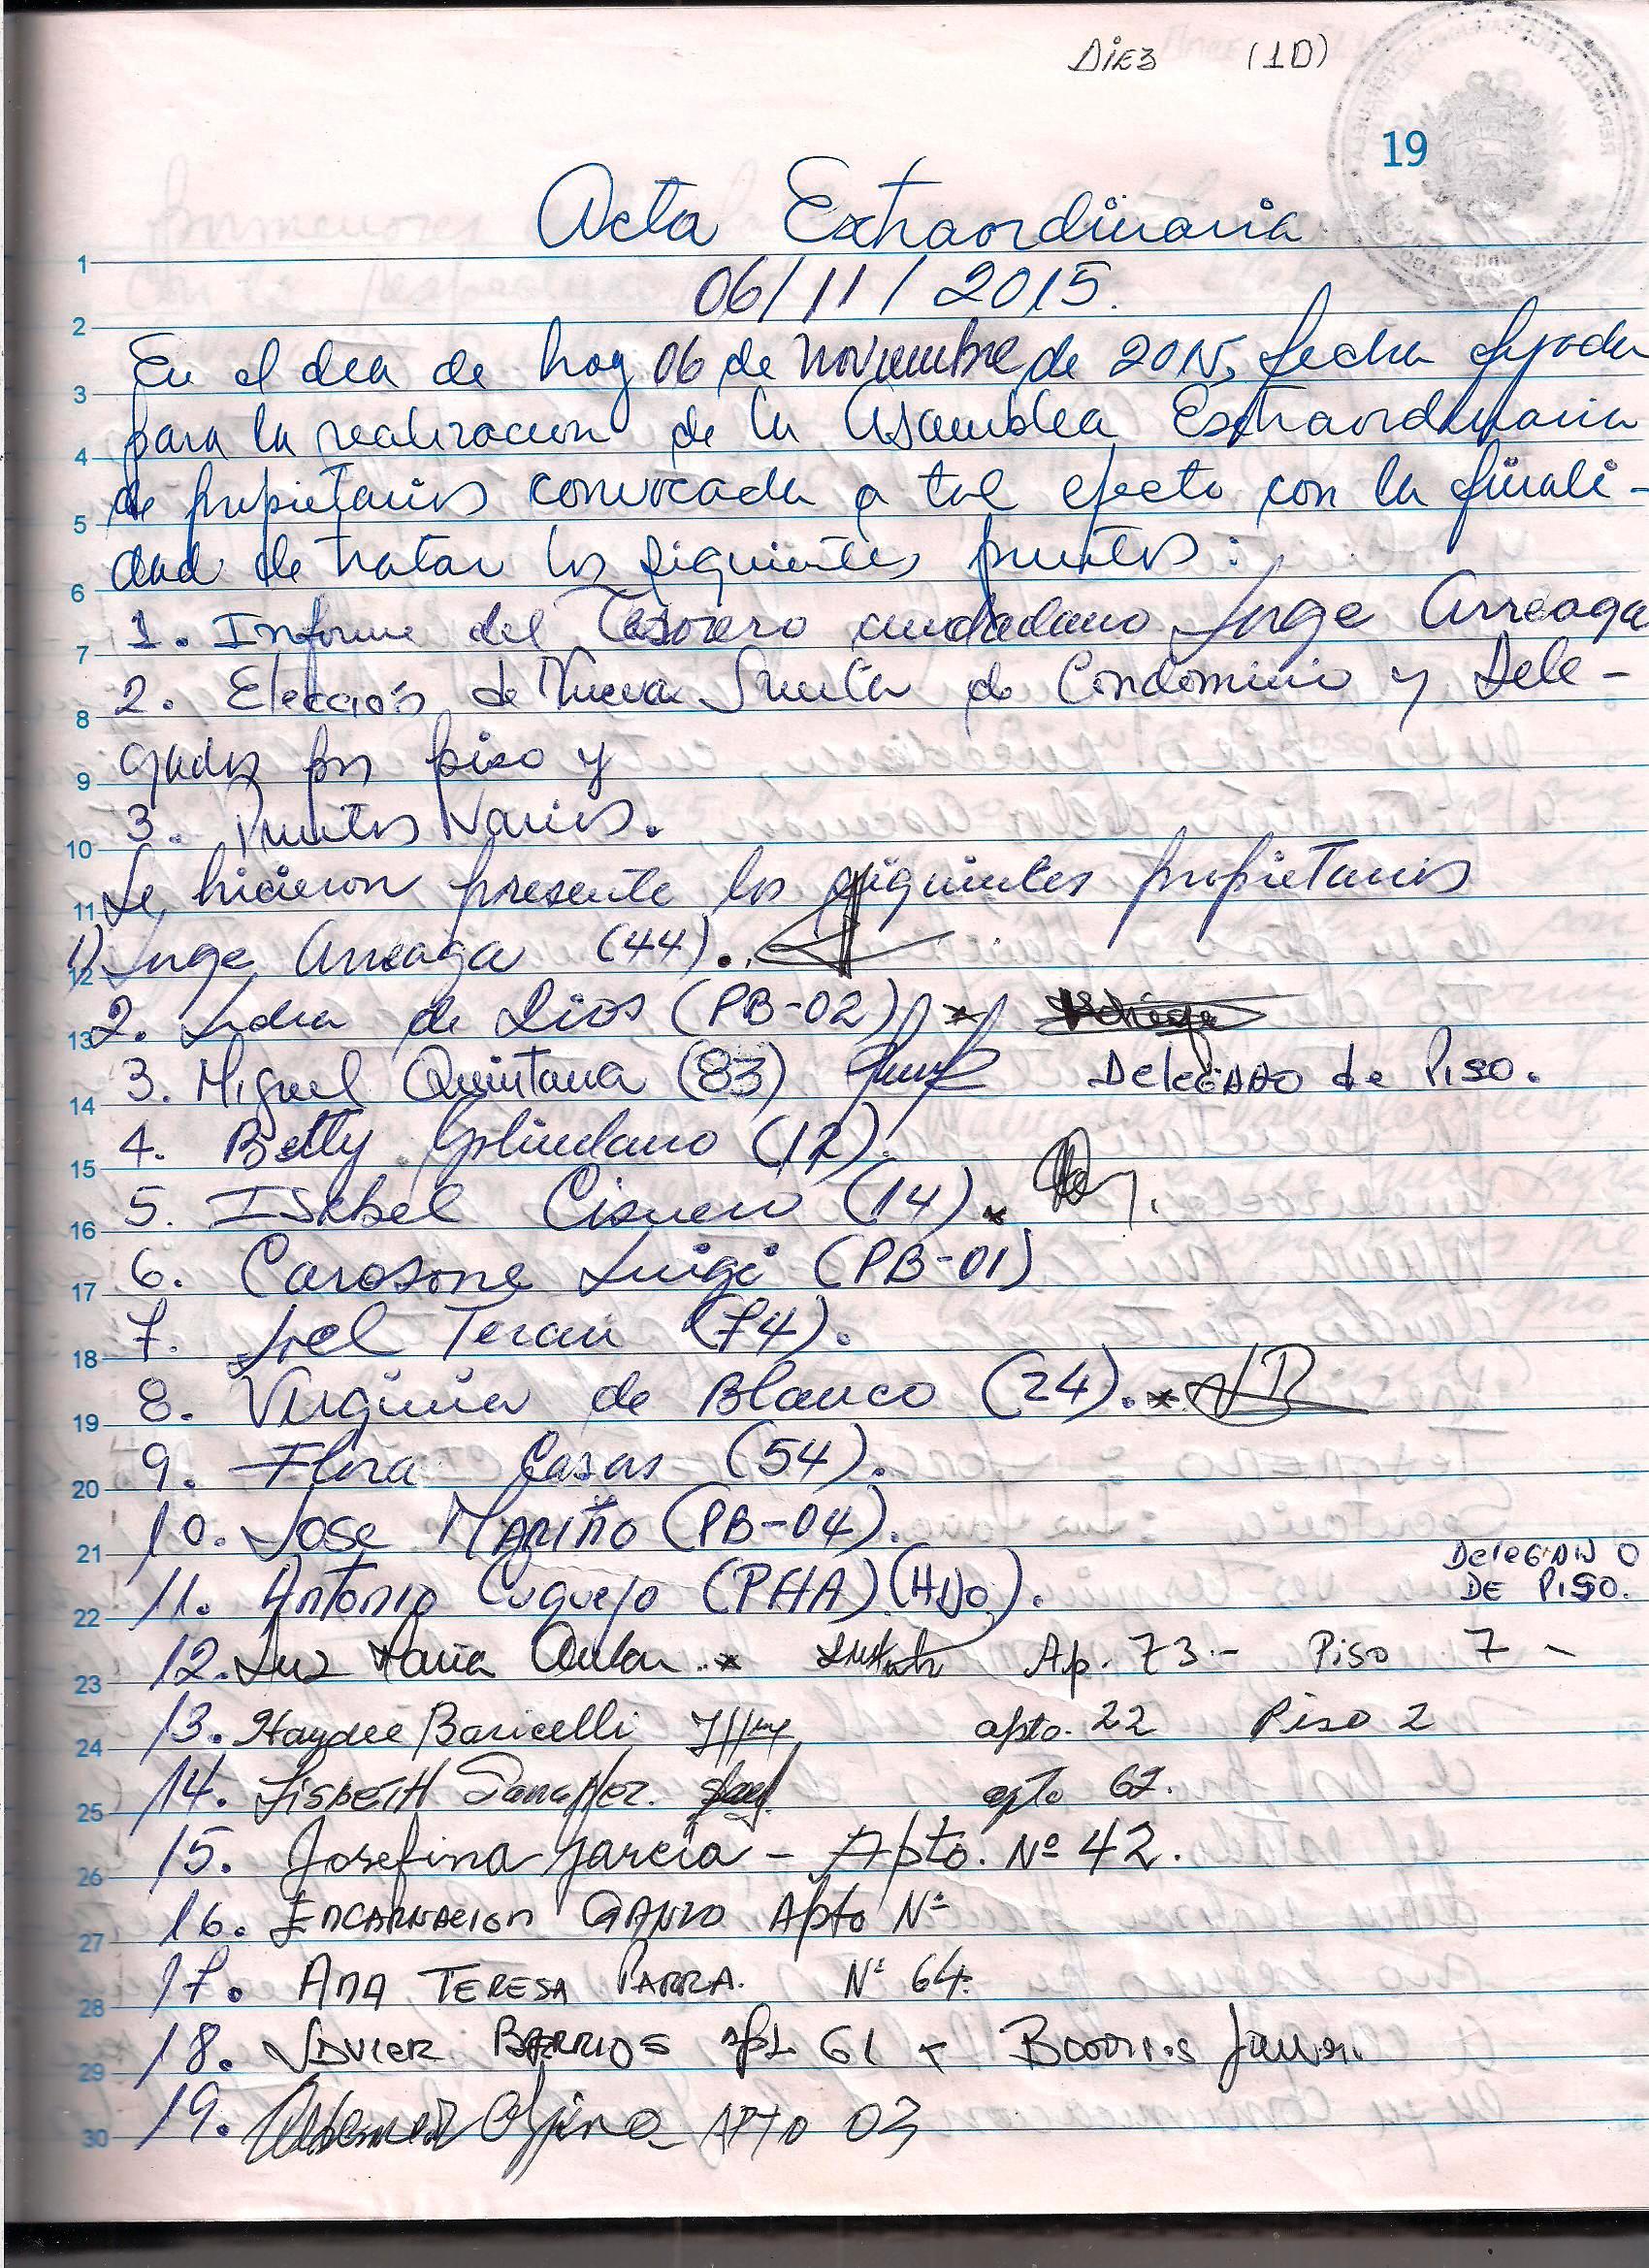 DiEz (10)
19
Acta Extraordinaria
1
06/11/2015.
2
En el dia de hoy 06 de noviembre de 2015, fecha fijada
3
para la realizacion de la Asamblea Extraordinaria
4
de propietarios convocada a tal efecto con la finali-
5
dad de tratar los siguientes puntos:
6
1. Informe del Tesorero ciudadano Jorge Arreaga
7
2. Elección de Nueva Junta de Condominio y Dele-
8
gados por piso y
9
3. Puntos Varios.
10
Se hicieron presente los siguientes propietarios
11
1) Jorge Arreaga (44).
12
2. de Dios (PB-02)
13
3. Miguel Quintana (83) DelEGADO de Piso.
14
4. Betty Golindano (12).
15
5. Isabel Cisnero (14)
16
6. Carosone Luigi (PB-01)
17
7. Joel Teran (74).
18
8. Virginia de Blanco (24).
19
9. Flora Casas (54).
20
10. Jose MARiño (PB-04).
21
DelEGADO
11. Antonio Cuquejo (PHA) (HIJO).
DE PISO.
22
12. Luz Maria Ap. 73.- Piso 7 -
23
13. Haydee Baricelli apto. 22 Piso 2
24
14. LisbEtH SancHez. apto 62.
25
15. Josefina Garcia - Apto. Nº 42.
26
16. EncARNAcion Apto Nº
27
17. ANA TERESA PARRA. Nº 64.
28
18. JAVIER BARRIOS 61 Barrios Javier.
29
19. APTO 03
30